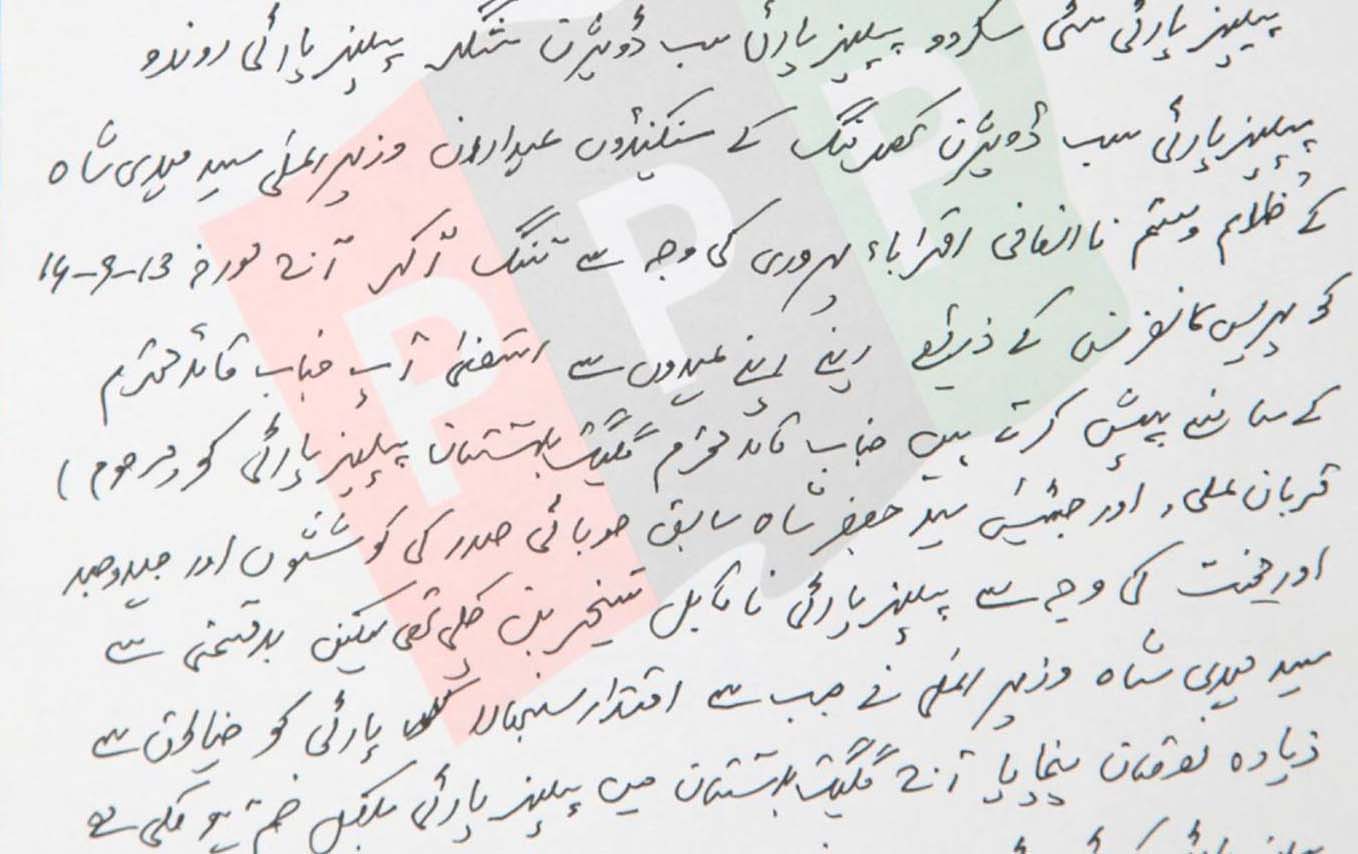 پیپلز پارٹی سٹی سکردو پیپلز پارٹی سب ڈویژن شگر پیپلز پارٹی روندو
پیپلز پارٹی سب ڈویژن کھرمنگ کے سنکیڑوں عہداران وزیر اعلیٰ سید مہدی شاہ
کے ظلم وستم ناانصافی اقرباء پروری کی وجہ سے تنگ آکر آج مورخہ 13-9-14
کو پریس کانفرنس کے ذریعے اپنے اپنے عہدوں سے استعفیٰ آپ جناب قائد محترم
کے سامنے پیش کرتے ہیں جناب قائد محترم گلگت بلتستان پیپلز پارٹی کو (مرحوم)
قربان علی، اور جسٹس سید جعفر شاہ سابق صوبائی صدر کی کوششوں اور جہدوجہد
اور محنت کی وجہ سے پیپلز پارٹی ناقابل تسخیر بن چکی تھی لیکن بدقسمتی سے
سید مہدی شاہ وزیر اعلیٰ نے جب سے اقتدار سنبھالا پارٹی کو ضیاالحق سے
زیادہ نقصان پہنچایا آج گلگت بلتستان میں پیپلز پارٹی بلکل ختم ہو چکی ہے
PPP